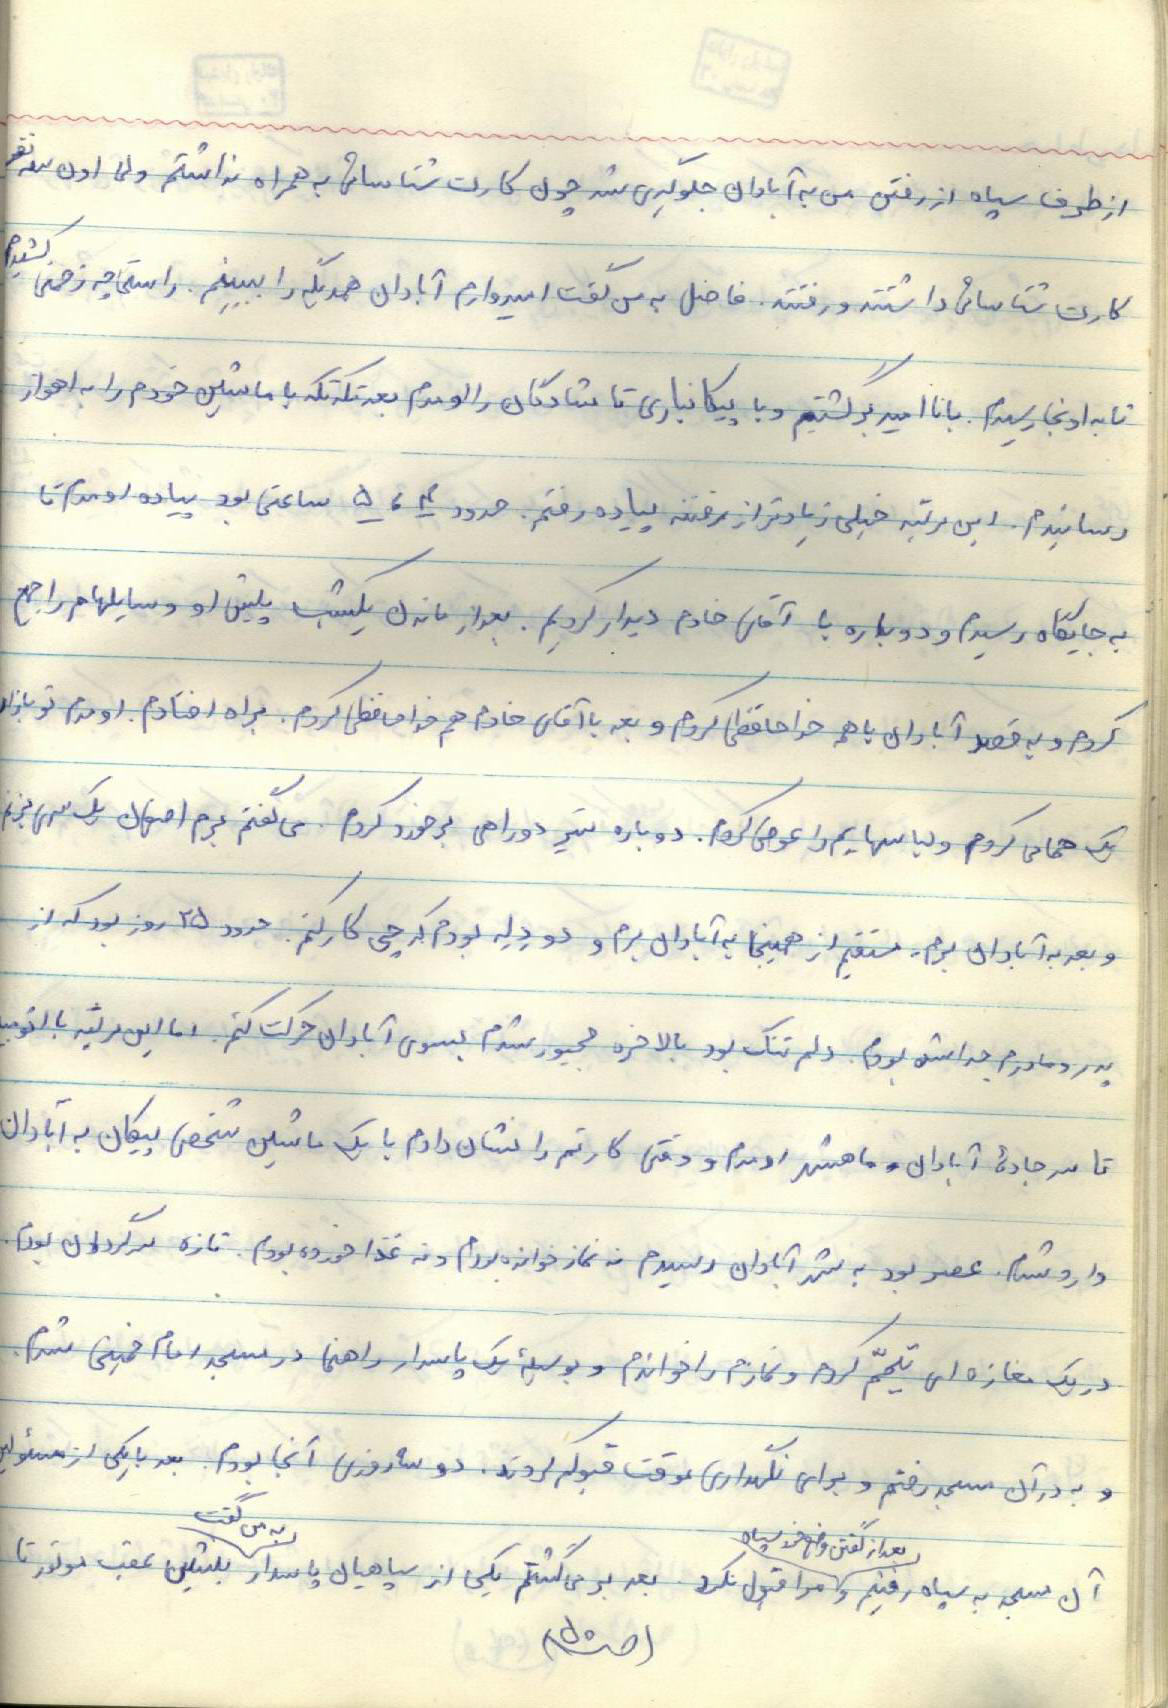 از طرف سپاه از رفتن من به آبادان جلوگیری شد چون کارت شناسائی به همراه نداشتم ولی اون سه نفر
کارت شناسائی داشتند و رفتند. فاضل به من گفت امیدوارم آبادان همدیگه را ببینیم. راستی چه زحمتی کشیدم
تا به اونجا رسیدم. با ناامید برگشتم و با پیکانباری تا شادگان را اومدم بعد تکه تکه با ماشین خودم را به اهواز
رسانیدم. این مرتبه خیلی زیادتر از رفتنه پیاده رفتم. حدود ۴ ، ۵ ساعتی بود پیاده اومدم تا
به جایگاه رسیدم و دوباره با آقای خادم دیدار کردیم. بعد از ماندن یکشب پیش او وسایلهام را جمع
کردم و به قصد آبادان با همه خداحافظی کردم و بعد با آقای خادم هم خداحافظی کردم. براه افتادم. اومدم تو بازار
یک حمامی کردم و لباسهایم را عوض کردم. دوباره سَرِ دوراهی برخورد کردم. می گفتم برم اصفهان یک سری بزنم
و بعد به آبادان برم. مستقیم از همینجا به آبادان برم و دو دِله بودم که چی کار کنم. حدود ۲۵ روز بود که از
پدر و مادرم جدا شده بودم. دلم تنگ بود بالاخره مجبور شدم بسوی آبادان حرکت کنم. اما این مرتبه با
تا سر جادهٔ آبادان و ماهشهر اومدم و وقتی کارتم را نشان دادم با یک ماشین شخصی پیکان به آبادان
وارد شدم. عصر بود به شهر آبادان رسیدم نه نماز خوانده بودم و نه غذا خورده بودم. تازه سرگردون بودم.
در یک مغازه ای تیمّم کردم و نمازم را خواندم و بوسیلهٔ یک پاسدار راهنما در مسجد امام خمینی شدم.
و به در آن مسجد رفتم و برای نگهداری موقت قبولم کردند. دو سه روزی آنجا بودم. بعد با یکی از مسئولین
آن مسجد به سپاه رفتیم و بعد از گفتن سپاه مرا قبول نکرد. بعد بر می گشتم یکی از سپاهیان پاسدار به من گفت بشین عقب موتور تا
(ص ۵۰)